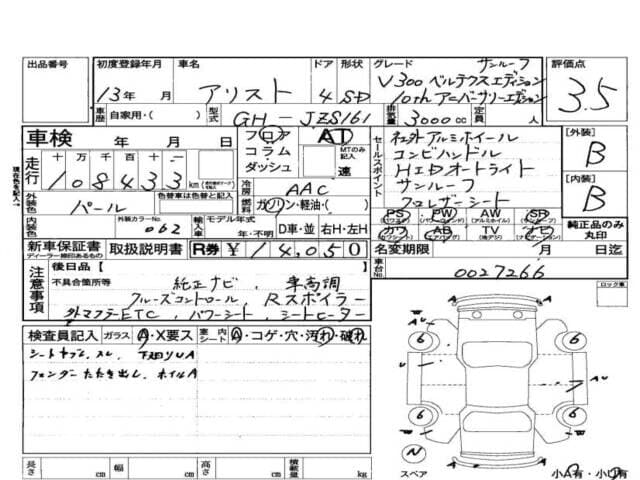 出品番号 初度登録年月 車名 ドア 形状 グレード サンルーフ 評価点
13年 月 アリスト 4 SD V300 ベルテクスエディション
10th アニーバーサリーエディション 3.5
車歴 自家用・( ) 型式 GH - JZS161 排気量 3000cc 定員 人
車検 年 月 日 フロア AT セールスポイント 社外アルミホイール [外装]
コラム MTのみ記入 コンビハンドル B
走行 十 万 千 百 十 一 ダッシュ 速 HIDオートライト
108433 km 冷房 AAC サンルーフ [内装]
現在色を記入→ 外装色 色替車は色替と記入 パール 燃料 ガソリン・軽油・( ) フルレザーシート B
内装色 外装カラーNo. 062 輸入車 モデル年式 年・不明 D車・並 右H・左H PS PW AW SR
カワ AB TV ナビ 純正品のみ丸印
新車保証書 取扱説明書 R券 ¥14,050 名変期限 月 日迄
ディーラー捺印あるもの
注意事項 後日品 [ ] 車台No. 0027266
不具合箇所等 純正ナビ、車高調 ロック車
クルーズコントロール、Rスポイラー
外マフラー ETC、パワーシート、シートヒーター
検査員記入 ガラス A・X要ス 室内 シート A・コゲ・穴・汚れ・破れ
シートヤブレ、スレ、下廻りUA
フェンダーたたき出し、ホイルA
6 6
AU
6 6
N
スペア 小A有・小U有
長さ cm 幅 cm 高さ cm 積載量 kg